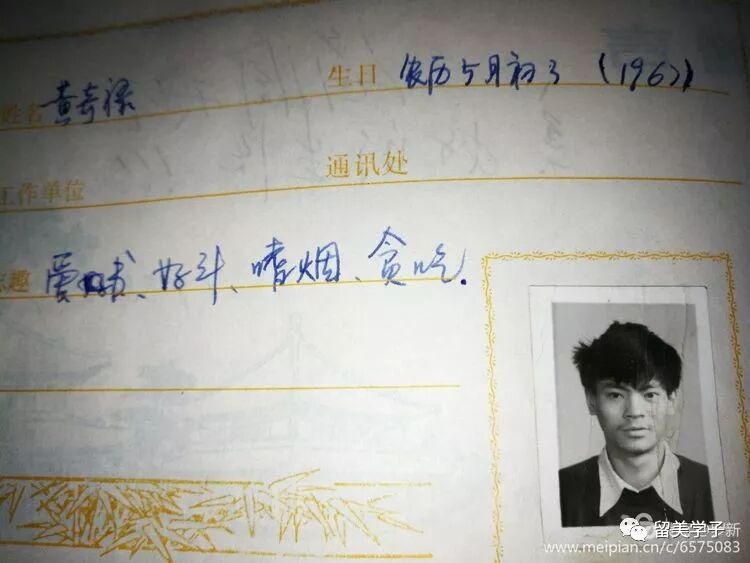 姓名 黄奇 生日 农历5月初3
通讯处
工作单位
趣 好斗、嗜烟、贪吃.
留美学子 新
www.meipian.cn/c/6575083